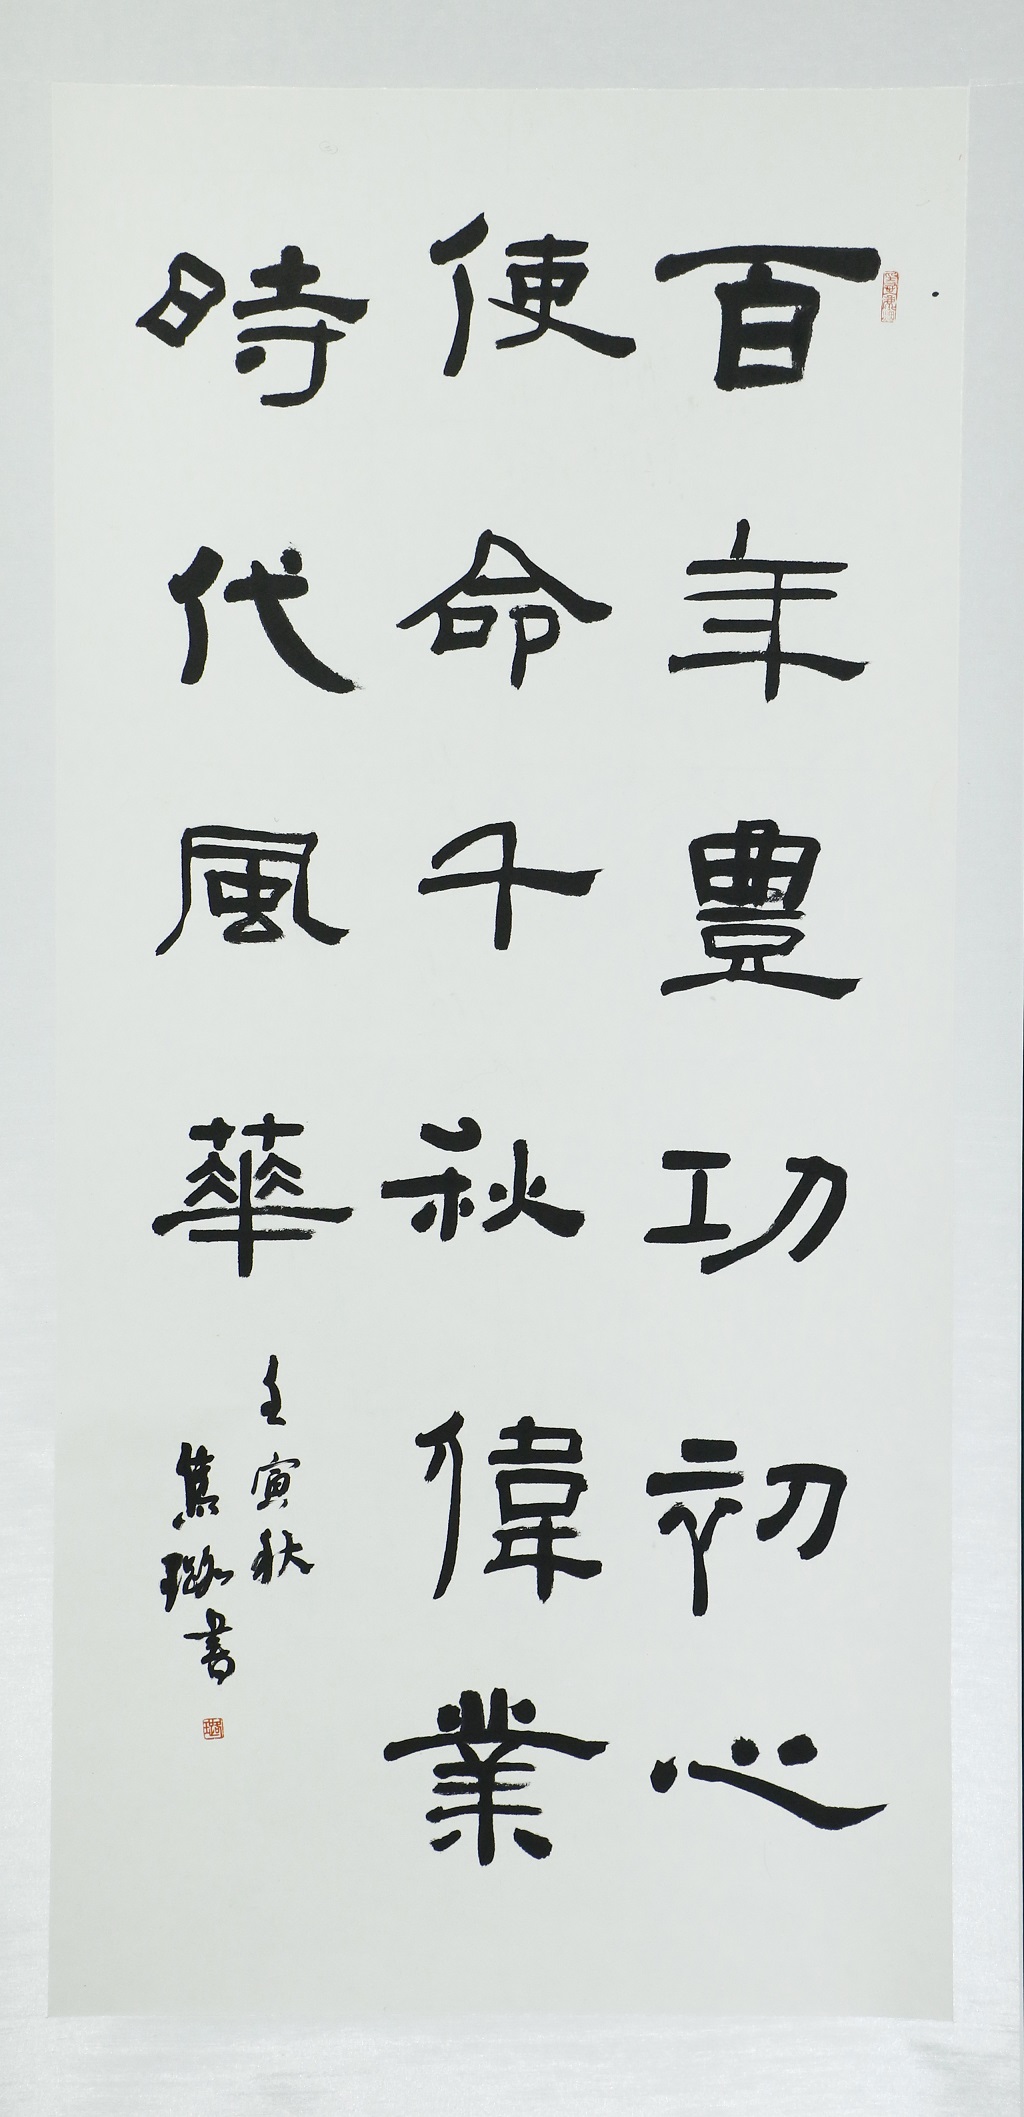 百年豊功初心
使命千秋偉業
時代風華
壬寅秋
焦璐書